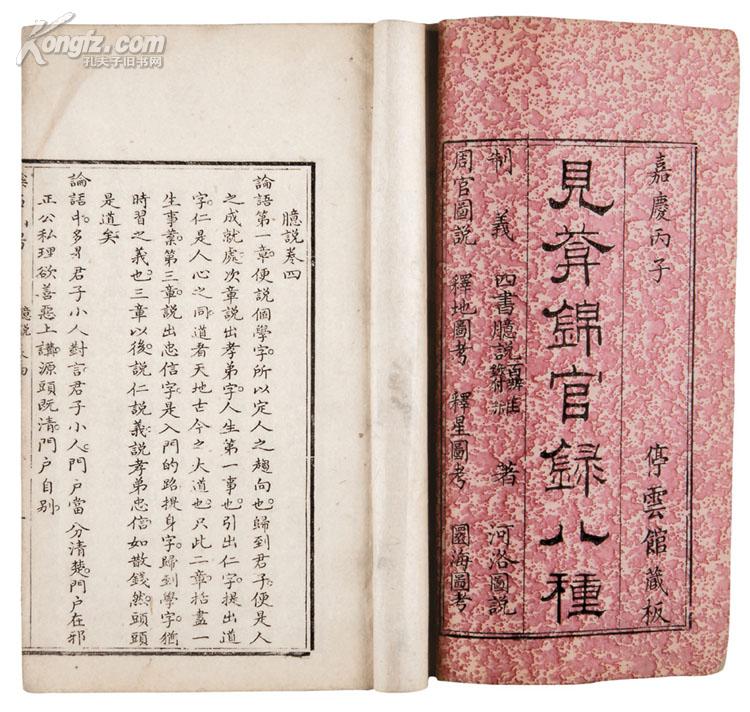 Kongfz.com
孔夫子旧书网
嘉慶丙子
停雲館藏板
見菴錦官録八種
制義
四書臆説
著
河洛圖説
周官圖説
釋地圖考
釋星圖考
圜海圖考
臆説卷四
論語第一章便説個學字所以定人之趨向也歸到君子便是人
之成就處次章説出孝弟字人生第一事也引出仁字提出道
字仁是人心之同道者天地古今之大道也只此二章括盡一
生事業第三章説出忠信字是入門的路提身字歸到學字猶
時習之義也三章以後説仁説義説孝弟忠信如散錢然頭頭
是道矣
論語中多君子小人對言君子小人門戶當分清楚門戶在邪
正公私理欲善惡上講源頭既清門戶自别
臆説